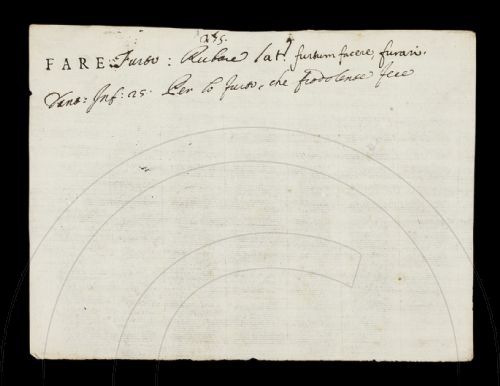 275.
FARE Furto: Rubare lat. furtum facere, furari.
Dant: Inf: 25. Per lo furto, che frodolente fece